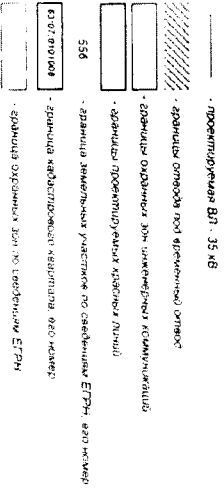 - проектируемая ВЛ - 35 кВ
- границы отвода под временный отвод
- границы охранных зон инженерных коммуникаций
- границы проектируемых красных линий
556 - граница земельных участков по сведениям ЕГРН, его номер
63:07:0101008 - граница кадастрового квартала, его номер
- граница охранных зон по сведениям ЕГРН